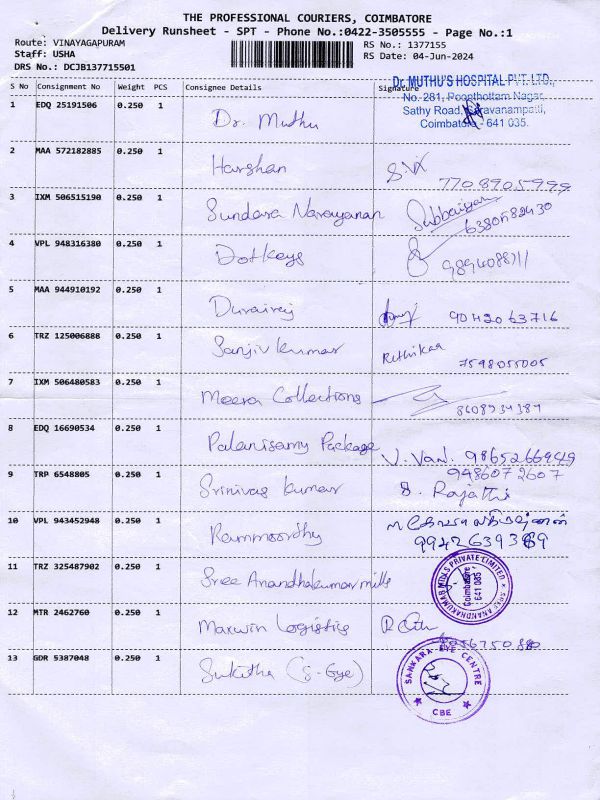 THE PROFESSIONAL COURIERS, COIMBATORE
Delivery Runsheet - SPT - Phone No.:0422-3505555 - Page No.:1
Route: VINAYAGAPURAM
Staff: USHA
DRS No.: DCJB137715501
RS No.: 1377155
RS Date: 04-Jun-2024
S No Consignment No Weight PCS Consignee Details Signature
Dr. MUTHU'S HOSPITAL PVT. LTD.,
No. 281, Poonthottam Nagar,
Sathy Road, Saravanampatti,
Coimbatore - 641 035.
1 EDQ 25191506 0.250 1 Dr. Muthu
2 MAA 572182885 0.250 1 Harshan 7708905999
3 IXM 506515190 0.250 1 Sundara Narayanan Subbaiyan 6380582430
4 VPL 948316380 0.250 1 Dotkeys 9894088711
5 MAA 944910192 0.250 1 Durairaj 9042063716
6 TRZ 125006888 0.250 1 Sanjiv kumar Rithikaa 7598055005
7 IXM 506480583 0.250 1 Meera Collections 8608934384
8 EDQ 16690534 0.250 1 Palanisamy Package V. Van. 9865266949
9 TRP 6548805 0.250 1 Srinivas kumar 9486072607
S. Rajathi
10 VPL 943452948 0.250 1 Rammoorthy 9942639389
11 TRZ 325487902 0.250 1 Sree Anandhakumar mills
SREE ANANDHAKUMAR MILLS PRIVATE LIMITED
Coimbatore
641 035
12 MTR 2462760 0.250 1 Maxwin Logistics
13 GDR 5387048 0.250 1 Sukitha (S-Eye)
SANKARA EYE CENTRE
CBE